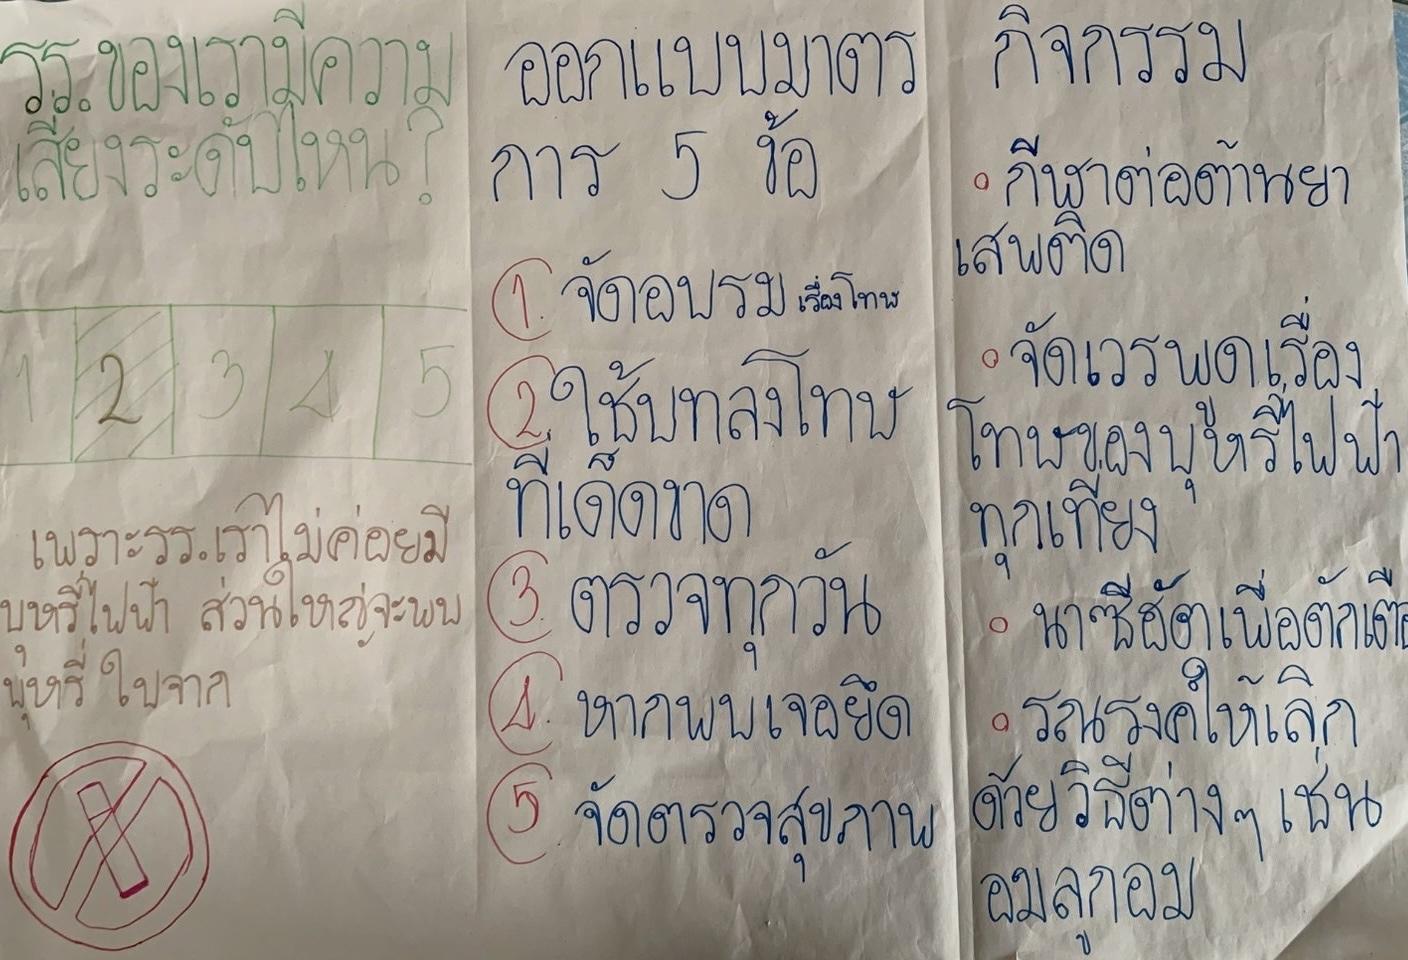 รร.ของเรามีความ
เสี่ยงระดับไหน?
1 2 3 4 5
เพราะรร.เราไม่ค่อยมี
บุหรี่ไฟฟ้า ส่วนใหญ่จะพบ
บุหรี่ ใบจาก
ออกแบบมาตร
การ 5 ข้อ
1. จัดอบรม เรื่องโทษ
2. ใช้บทลงโทษ
ที่เด็ดขาด
3. ตรวจทุกวัน
4. หากพบเจอยึด
5. จัดตรวจสุขภาพ
กิจกรรม
• กีฬาต่อต้านยา
เสพติด
• จัดเวรพูดเรื่อง
โทษของบุหรี่ไฟฟ้า
ทุกเที่ยง
• เพื่อตักเตือ
• รณรงค์ให้เลิก
ด้วยวิธีต่างๆ เช่น
อมลูกอม